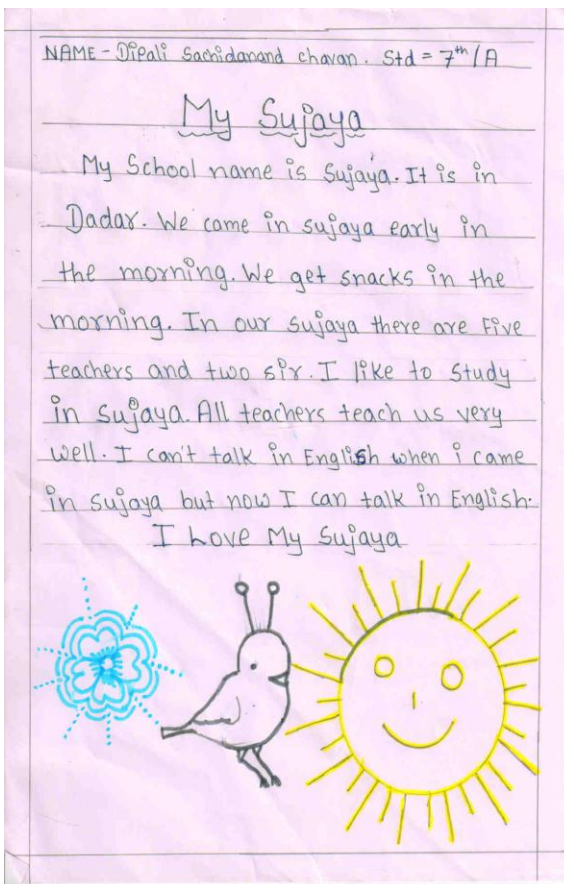 NAME - Dipali Sachidanand chavan. Std = 7th/A
My Sujaya
My School name is Sujaya. It is in
Dadar. We come in sujaya early in
the morning. We get snacks in the
morning. In our sujaya there are Five
teachers and two sir. I like to study
in sujaya. All teachers teach us very
well. I can't talk in English when i came
in sujaya but now I can talk in English.
I Love My Sujaya